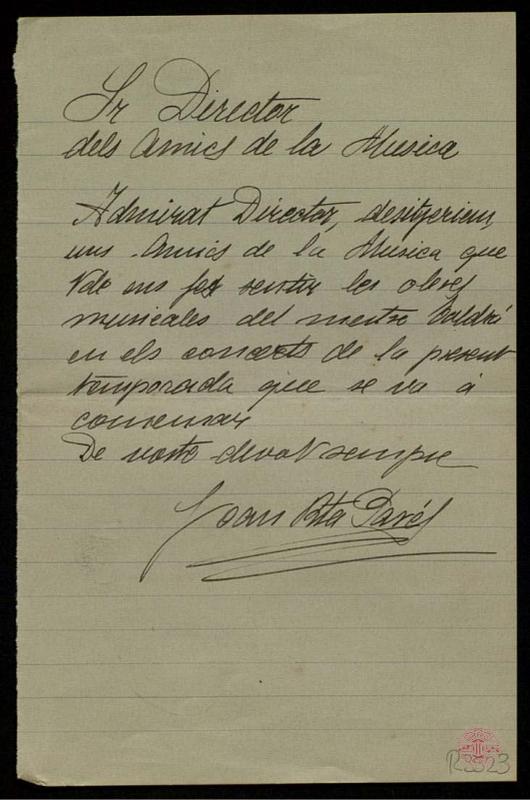 Sr Director
dels Amics de la Musica
Admirat Director, desitjeriem,
uns Amics de la Musica que
Vde ens fes sentir les obres
musicales del mestre Baldrí
en els concerts de la present
temporada que se va á
comensar
De vosté devot sempre
Joan Pta Parés
R3323